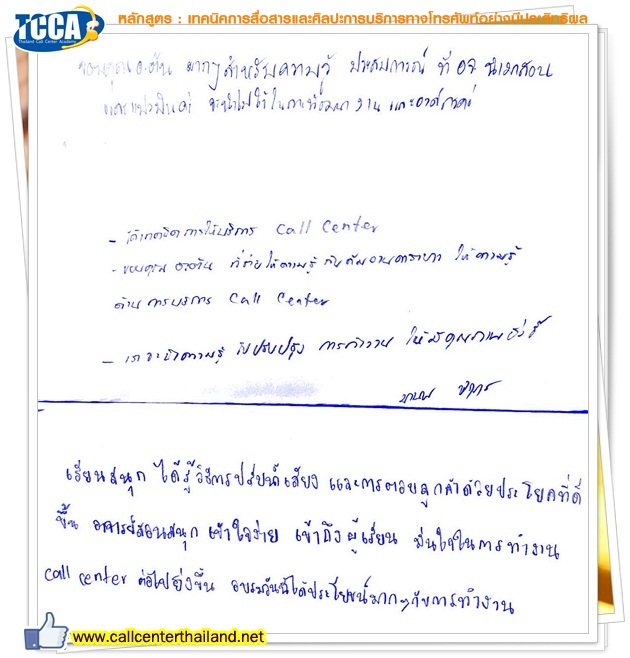 TCCA
Thailand Call Center Academy
หลักสูตร : เทคนิคการสื่อสารและศิลปะการบริการทางโทรศัพท์อย่างมีประสิทธิผล
ขอบคุณ อ.ตั้น มากๆสำหรับความรู้ ประสบการณ์ ที่ อจ นำมาสอน
และแบ่งปันค่ะ จะนำไปใช้ในการพัฒนา งาน และองค์กรค่ะ
- ได้เทคนิคการให้บริการ Call Center
- ขอบคุณ อ.ตั้น ที่ช่วยให้ความรู้ กับทีมงาน ให้ความรู้
ด้านการบริการ Call Center
- เราจะนำความรู้ ไปปรับปรุง การทำงาน ให้มีคุณภาพยิ่งขึ้น
เรียนสนุก ได้รู้วิธีการปรับน้ำเสียง และการตอบลูกค้าด้วยประโยคที่ดี
ขึ้น อาจารย์สอนสนุก เข้าใจง่าย เข้าถึงผู้เรียน มั่นใจในการทำงาน
call center ต่อไปยิ่งขึ้น อบรมวันนี้ได้ประโยชน์มากๆกับการทำงาน
www.callcenterthailand.net